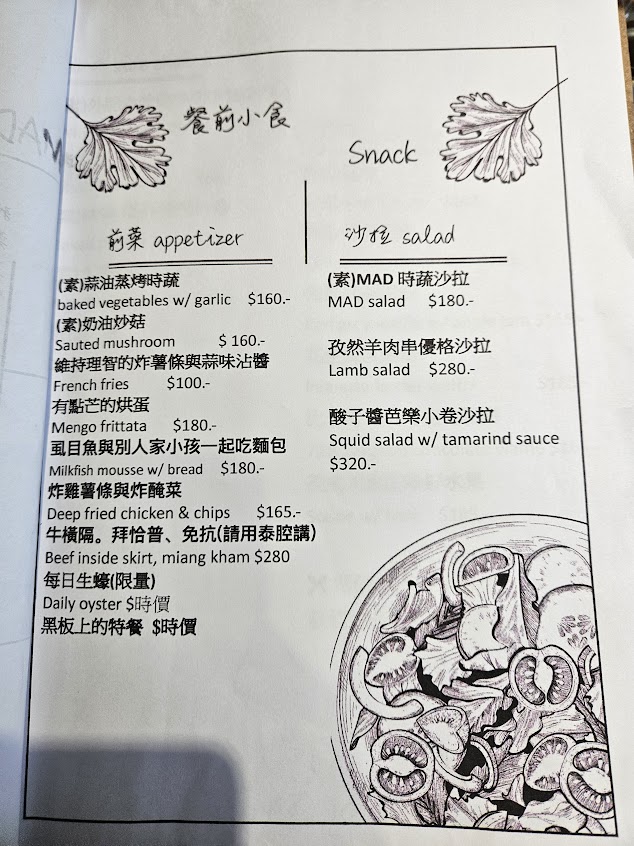 餐前小食
Snack
前菜 appetizer
(素)蒜油蒸烤時蔬
baked vegetables w/ garlic $160.-
(素)奶油炒菇
Sauted mushroom $ 160.-
維持理智的炸薯條與蒜味沾醬
French fries $100.-
有點芒的烘蛋
Mengo frittata $180.-
虱目魚與別人家小孩一起吃麵包
Milkfish mousse w/ bread $180.-
炸雞薯條與炸醃菜
Deep fried chicken & chips $165.-
牛橫隔。拜恰普、免抗(請用泰腔講)
Beef inside skirt, miang kham $280
每日生蠔(限量)
Daily oyster $時價
黑板上的特餐 $時價
沙拉 salad
(素)MAD 時蔬沙拉
MAD salad $180.-
孜然羊肉串優格沙拉
Lamb salad $280.-
酸子醬芭樂小卷沙拉
Squid salad w/ tamarind sauce
$320.-